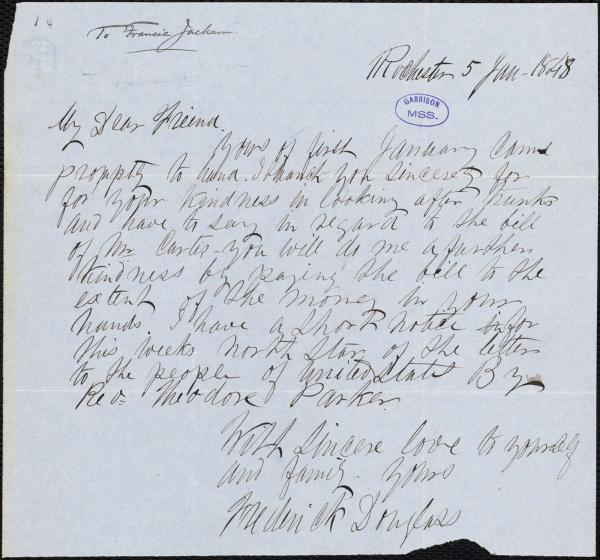 14
To Francis Jackson.
Rochester 5 Jan - 1848
GARRISON
MSS.
My Dear Friend.
Yours of first January came
proppty to hand. I thank you sincerely for
for your kindness in looking after trunks
and have to say in regard to the bill
of Mr Curtis - you will do me a further
kindness by paying the bill to the
extent of the money in your
hands. I have a short notice in for
this weeks North Star of the letter
to the people of United States By
Rev. Theodore Parker.
With sincere love to yourself
and family. yours
Frederick Douglass